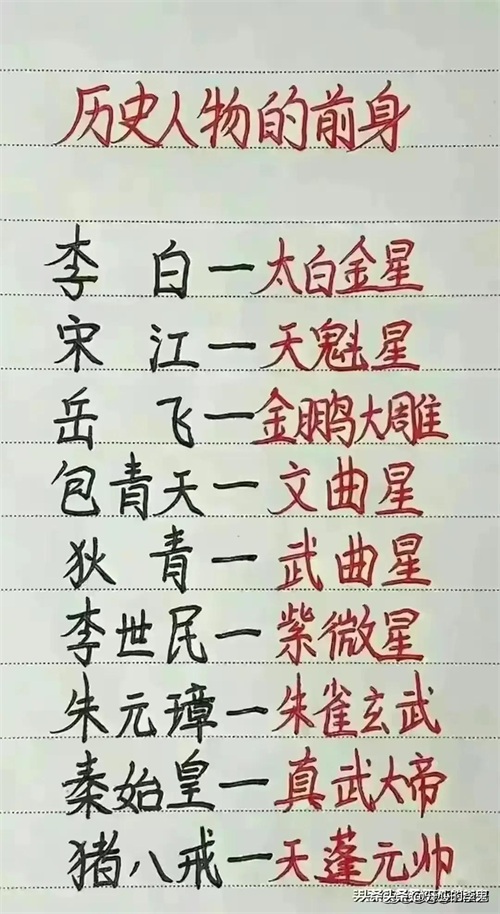 历史人物的前身
李白一太白金星
宋江一天魁星
岳飞一金鹏大雕
包青天一文曲星
狄青一武曲星
李世民一紫微星
朱元璋一朱雀玄武
秦始皇一真武大帝
猪八戒一天蓬元帅